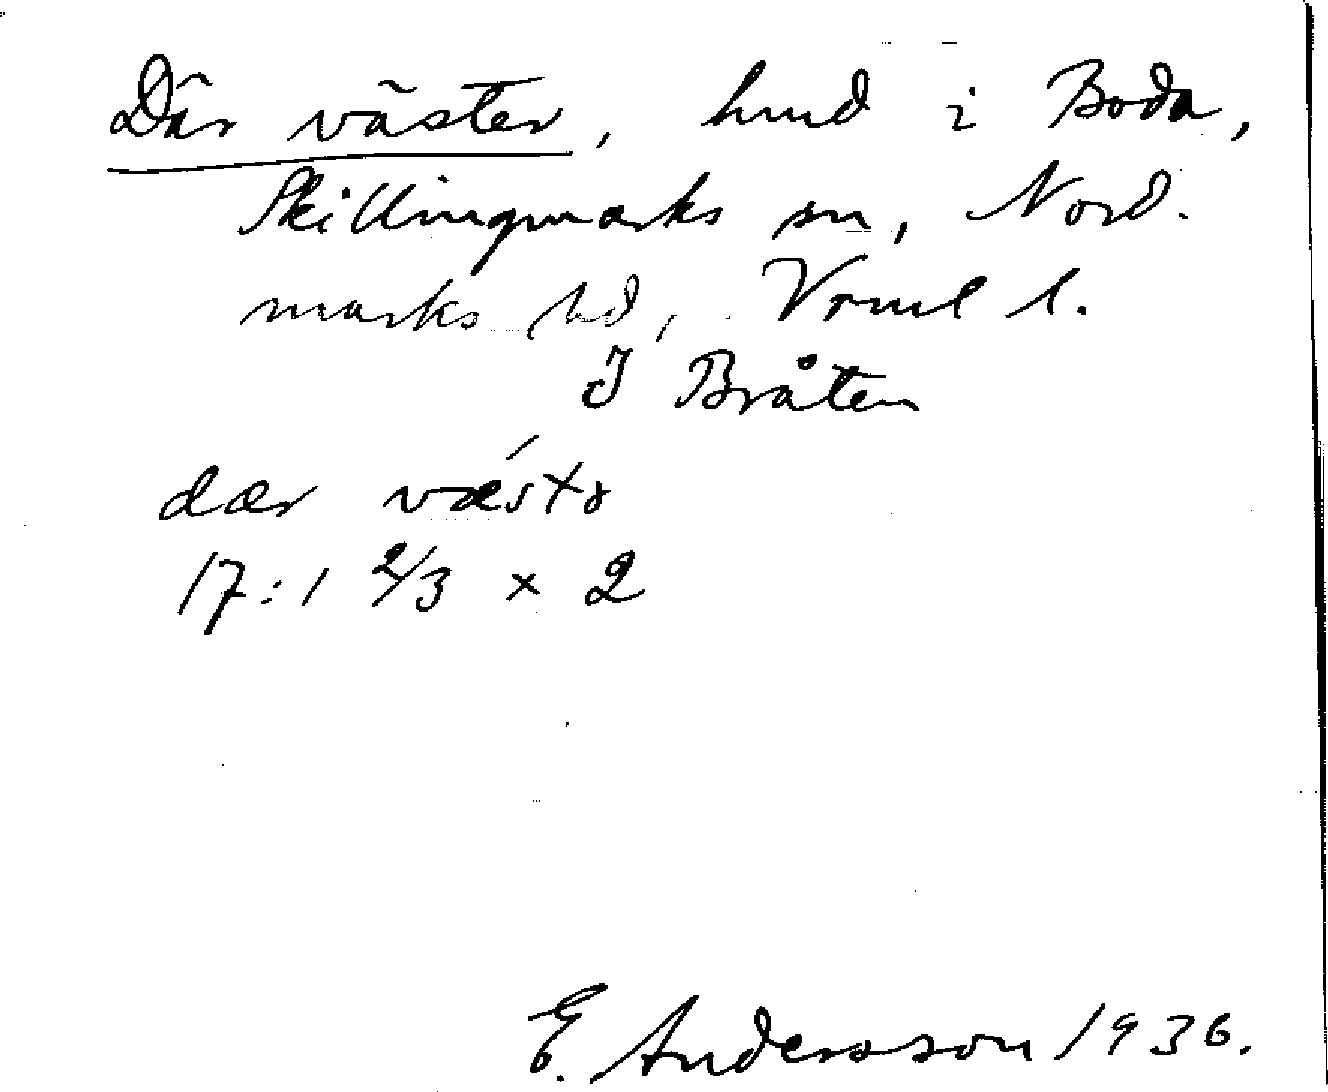 Där väster, hmd i Boda,
Skillingmarks sn, Nord.
marks hd, Vrml l.
I Bråten
dær væ´stə
17:1 2/3 × 2
E. Andersson 1936.